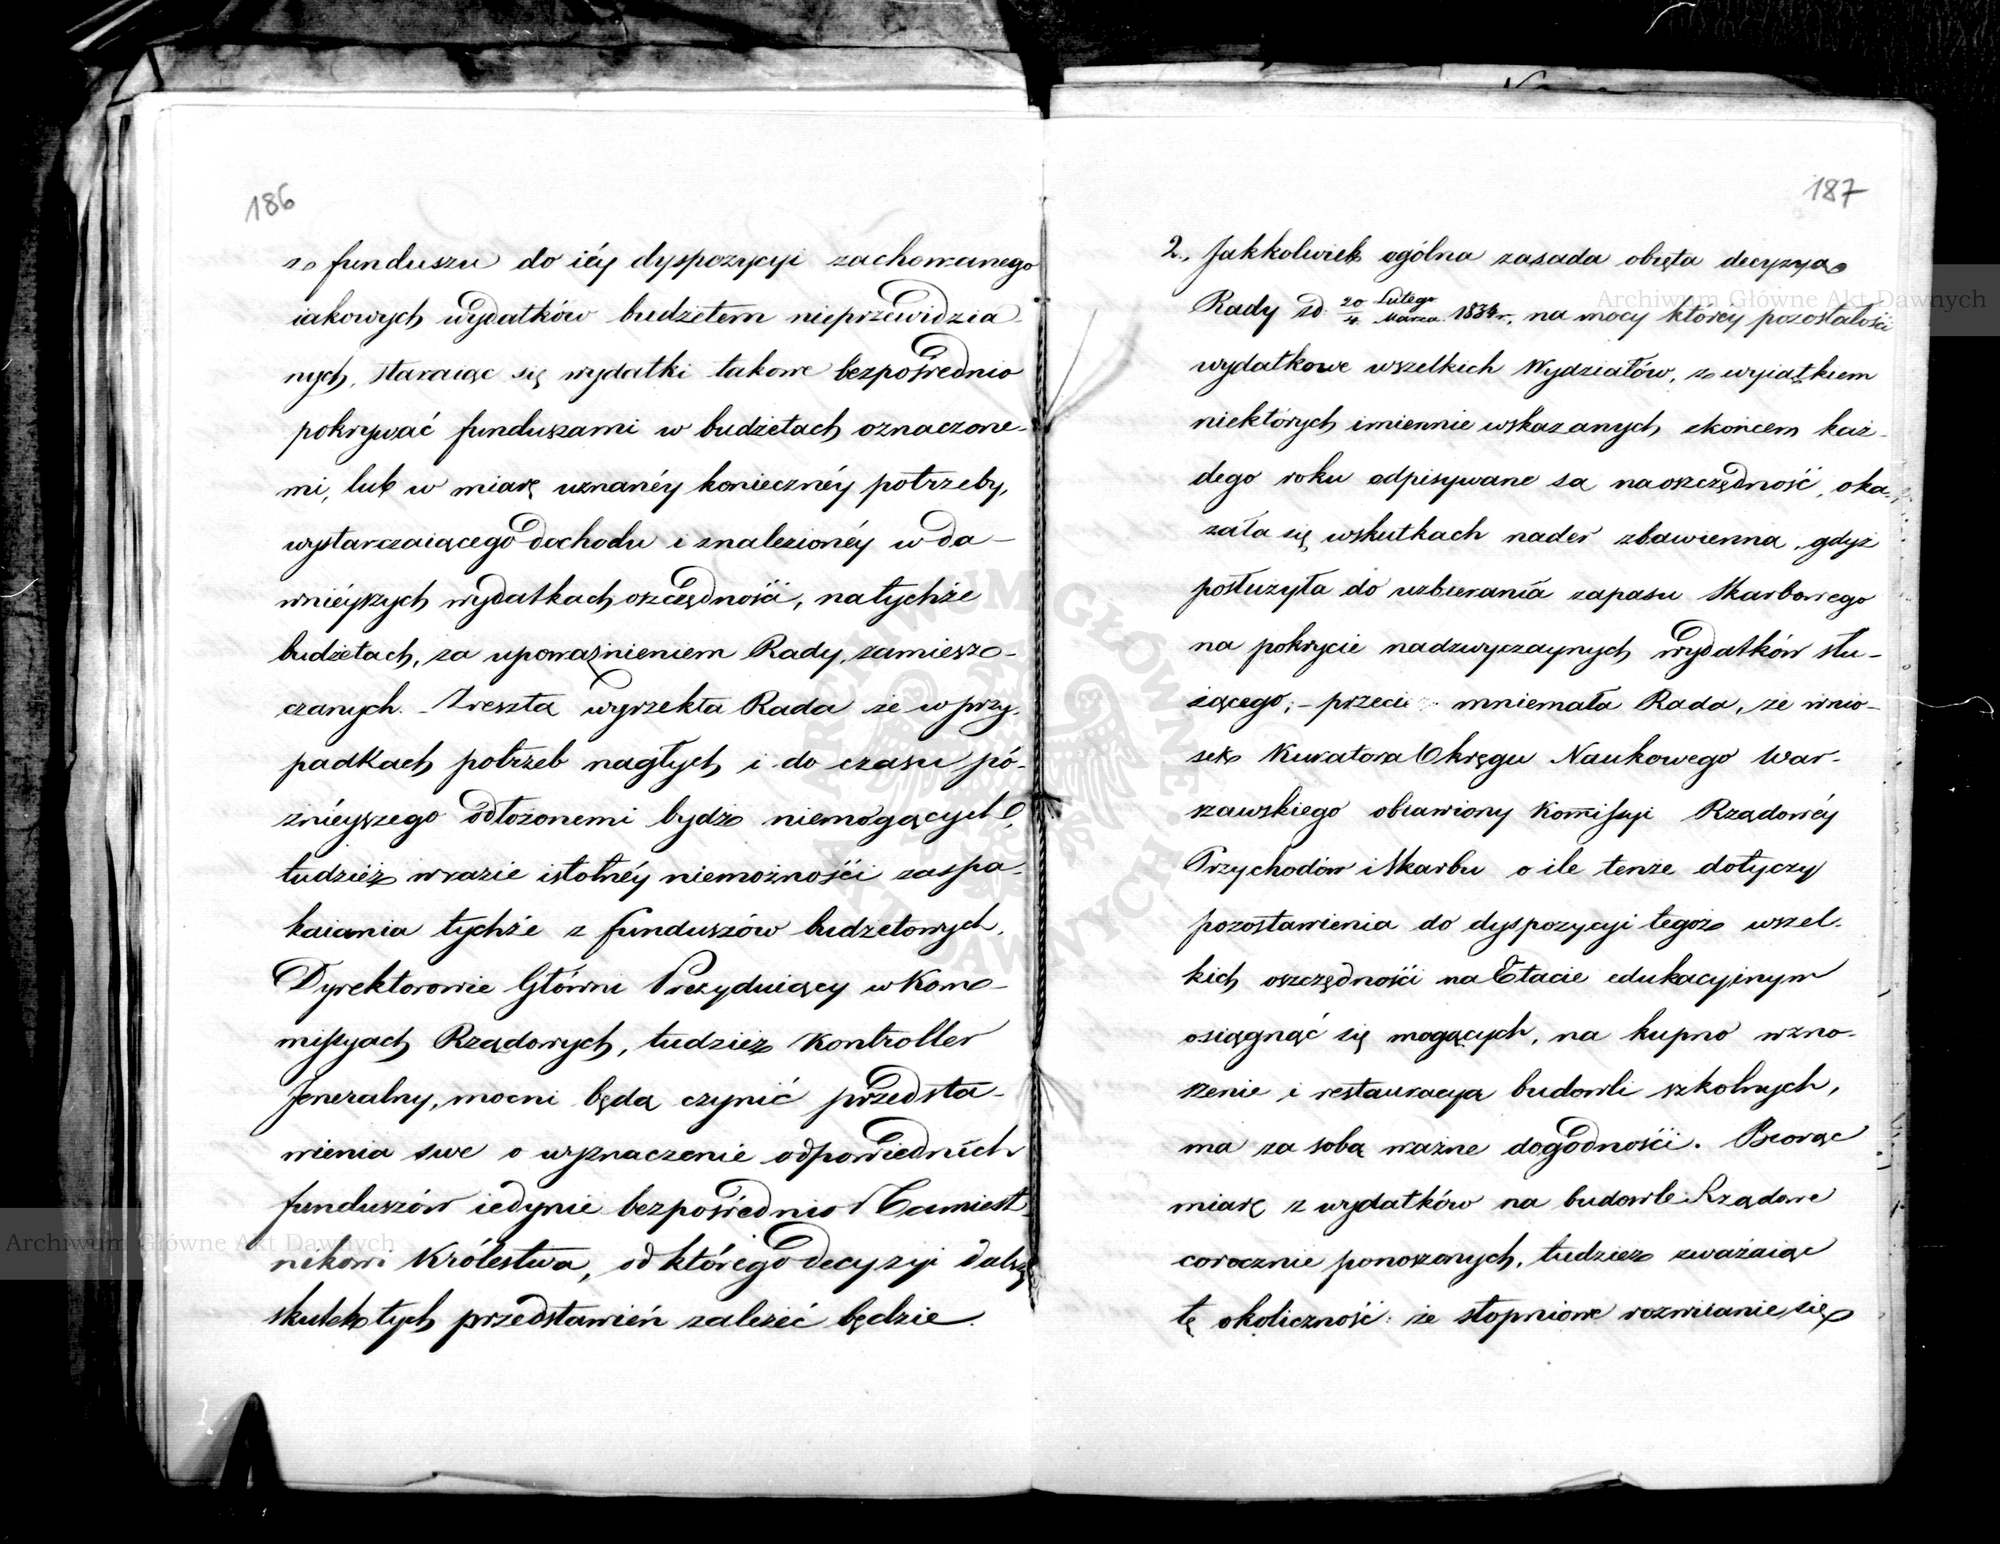 186
z funduszu do iéy dyspozycyi zachowanego
iakowych wydatków budżetem nieprzewidzia-
nych, staraiąc się wydatki takowe bezpośrednio
pokrywać funduszami w budżetach oznaczone-
mi, lub w miarę uznanéy koniecznéy potrzeby,
wystarczaiącego dochodu i znalezionéy w da-
wniéyszych wydatkach oszczędności, na tychże
budżetach, za upoważnieniem Rady, zamiesz-
czanych. - Zresztą wyrzekła Rada że w przy-
padkach potrzeb nagłych i do czasu pó-
źniéyszego odłożonemi bydź niemogących,
tudzież w razie istotnéy niemożności zaspa-
kaiania tychże z funduszów budżetowych,
Dyrektorowie Główni Prezyduiący w Kom-
missyach Rządowych, tudzież Kontroller
Jeneralny, mocni będą czynić przedsta-
wienia swe o wyznaczenie odpowiednich
funduszów iedynie bezpośrednio Namiest-
nikowi Królestwa, od którego decyzyi dalszy
skutek tych przedstawień zależeć będzie.
187
2., Jakkolwiek ogólna zasada obięta decyzyą
Rady z d. 20 Lutego / 4 Marca 1834 r., na mocy którey pozostałości
wydatkowe wszelkich Wydziałów, z wyiątkiem
niektórych imiennie wskazanych, z końcem każ-
dego roku odpisywane są na oszczędność, oka-
zała się w skutkach nader zbawienną, gdyż
posłużyła do uzbierania zapasu Skarbowego
na pokrycie nadzwyczaynych wydatków słu-
żącego; - przeci mniemała Rada, że wnio-
sek Kuratora Okręgu Naukowego War-
szawskiego obiawiony Kommissyi Rządowéy
Przychodów i Skarbu o ile tenże dotyczy
pozostawienia do dyspozycyi tegoż wszel-
kich oszczędności na Etacie edukacyinym
osiągnąć się mogących, na kupno wzno-
szenie i restauracyą budowli szkolnych,
ma za sobą ważne dogodności. Biorąc
miarę z wydatków na budowle Rządowe
corocznie ponoszonych, tudzież zważaiąc
tę okoliczność: że stopniowe rozwiianie się
Archiwum Główne Akt Dawnych
Archiwum Główne Akt Dawnych
ARCHIWUM GŁÓWNE AKT DAWNYCH